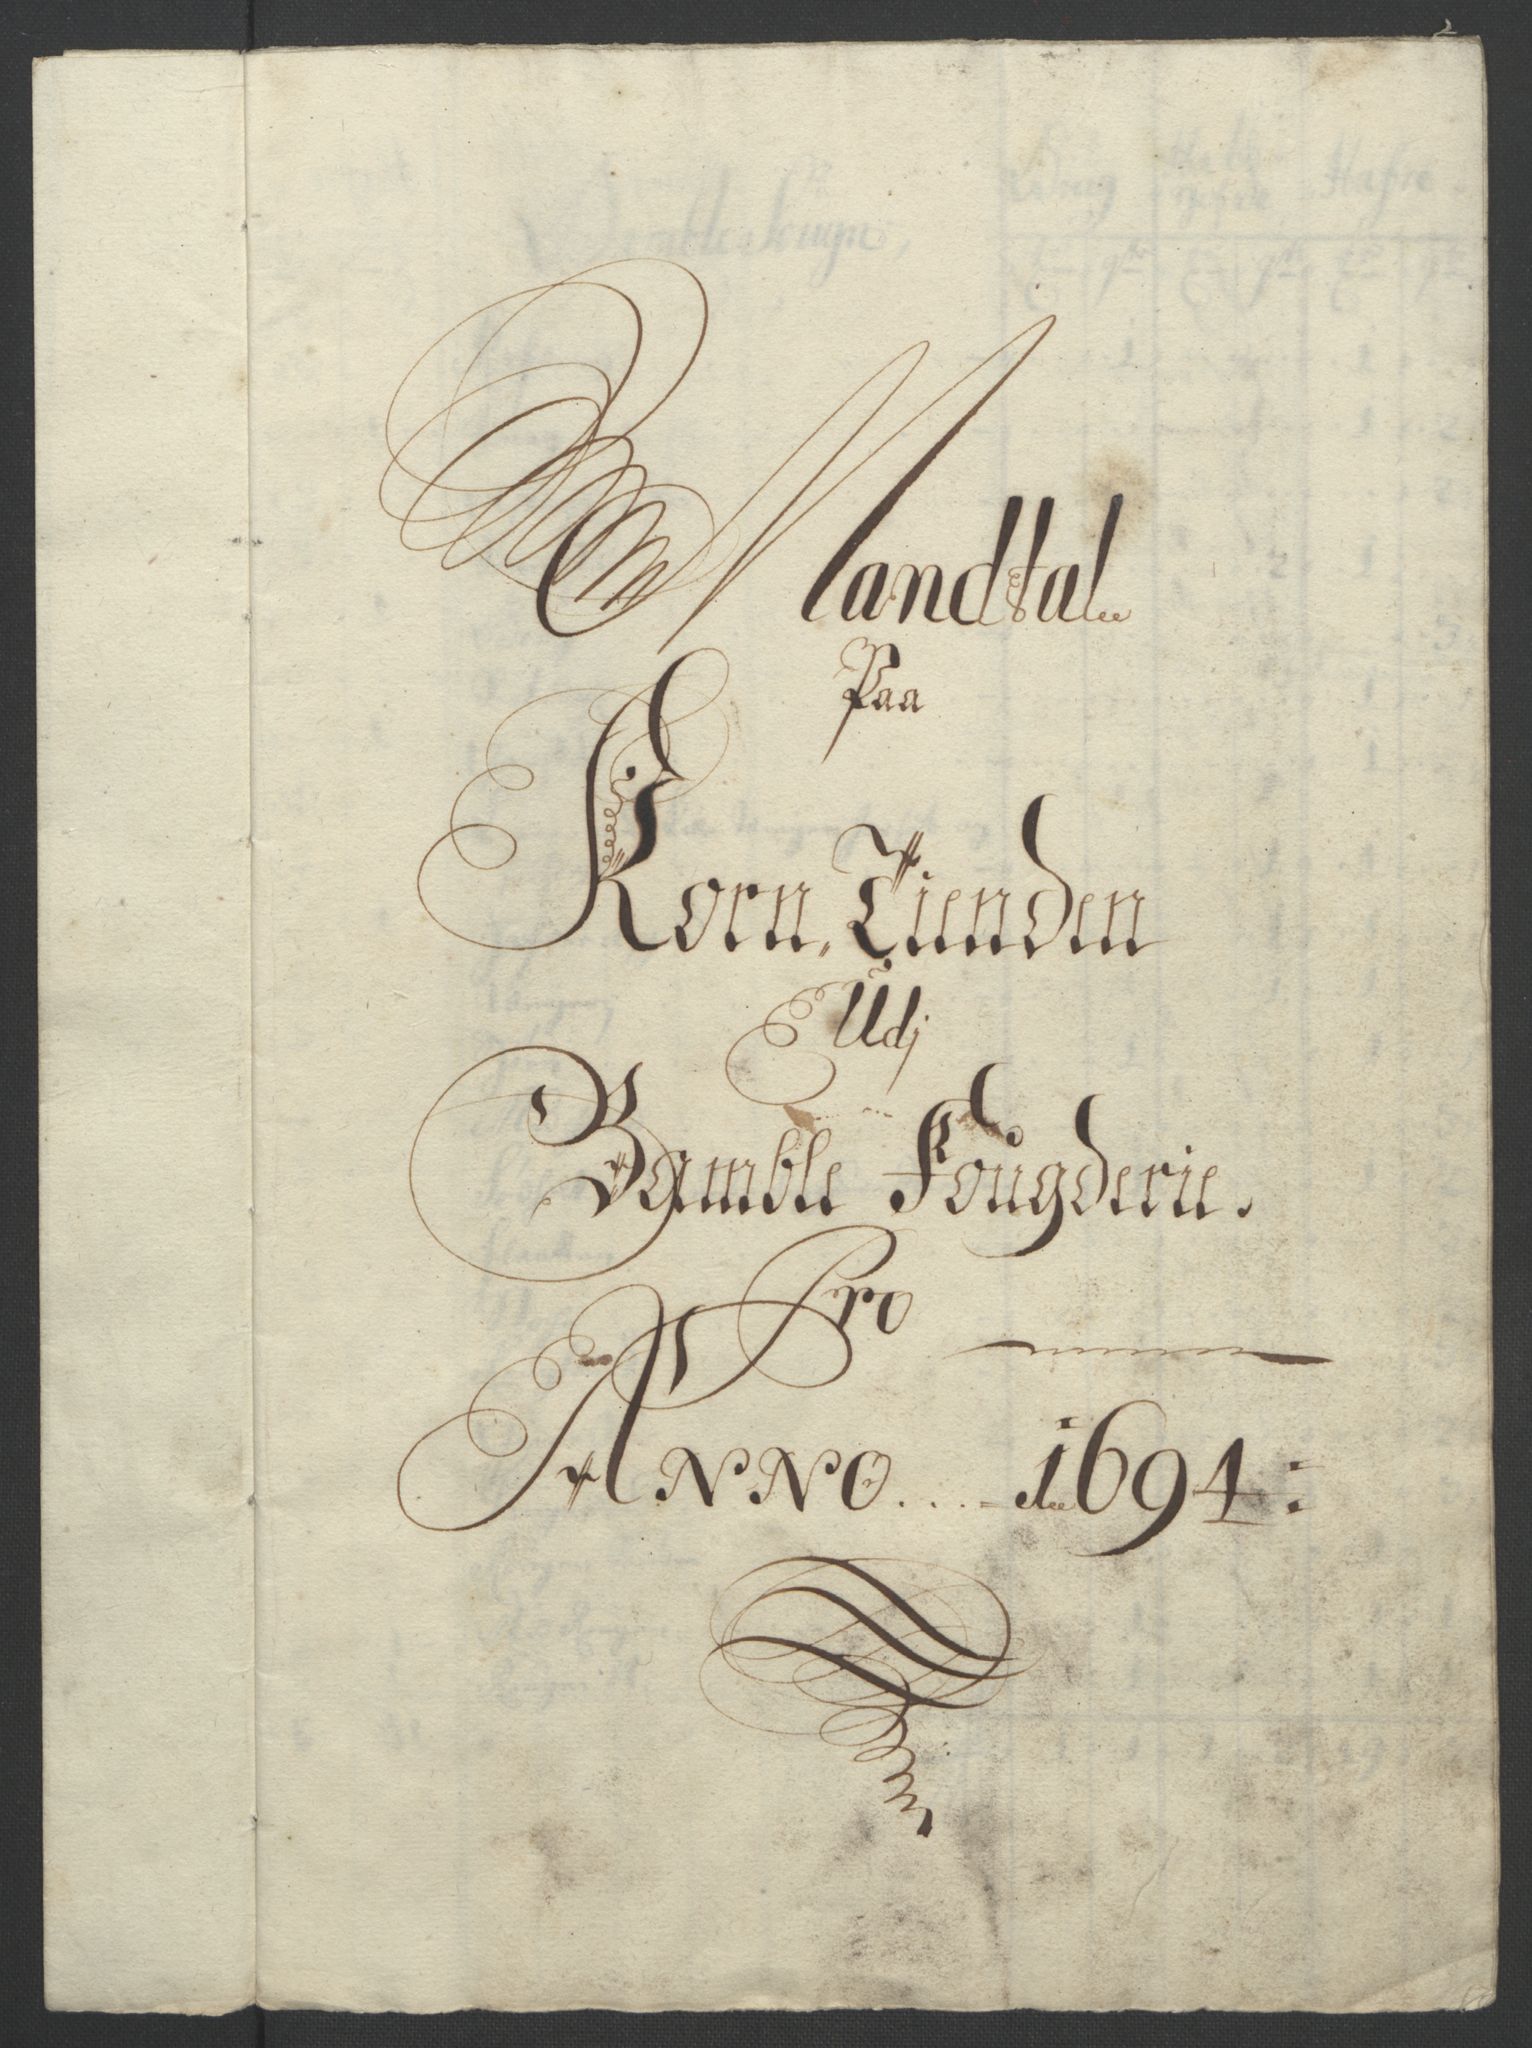 2
Mandtal
Paa
Korn, Tienden
Udj
Bamble Fougderie.
Pro
ANNO .... 1694: